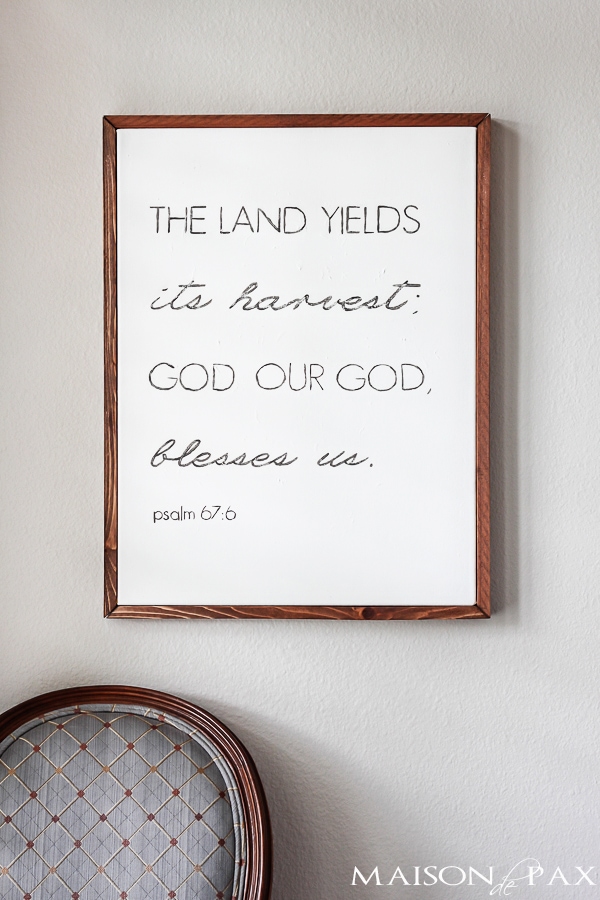 THE LAND YIELDS
its harvest;
GOD OUR GOD,
blesses us.
psalm 67:6
MAISON de PAX